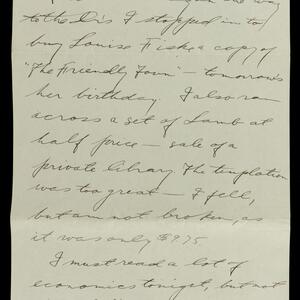 to the Dis I stopped in to
buy Louise Fiske a copy of
"The Friendly Town" - tomorrow's
her birthday. I also ran
across a set of Lamb at
half price - sale of a
private library. The temptation
was too great - I fell,
but am not broken, as
it was only $975
I must read a lot of
economics tonight, but not